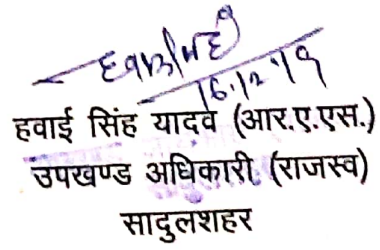 16.12.19
हवाई सिंह यादव (आर.ए.एस.)
उपखण्ड अधिकारी (राजस्व)
सादुलशहर